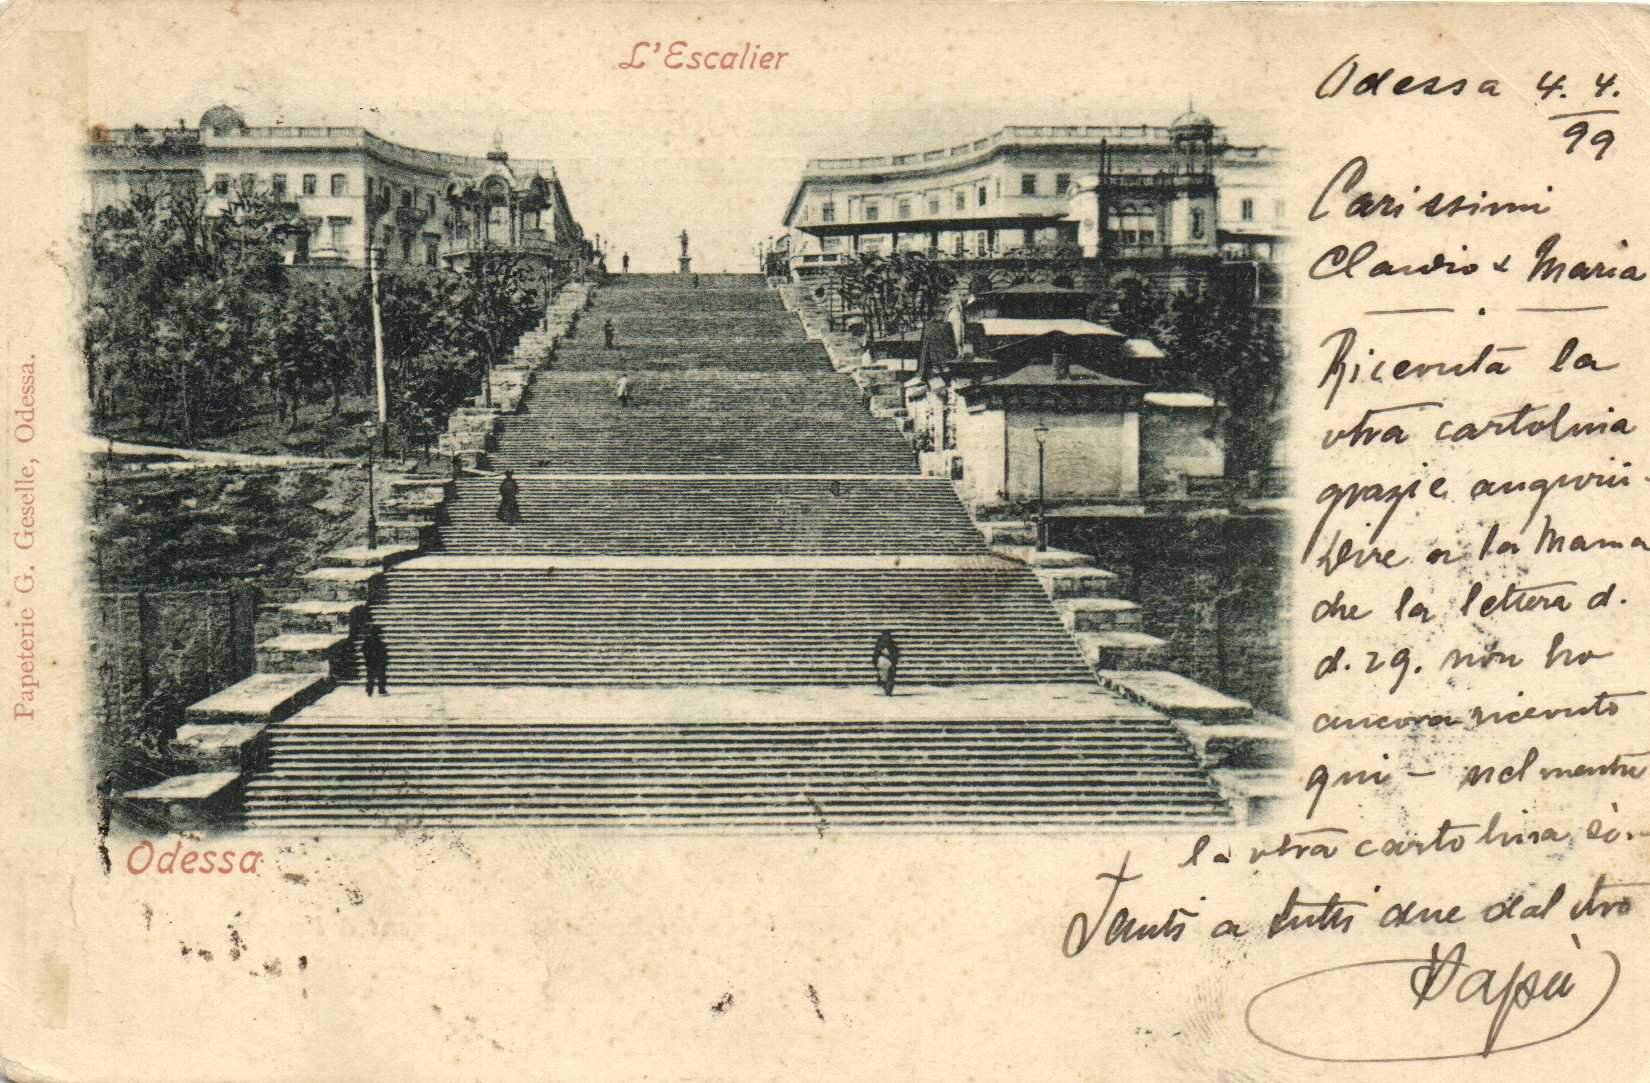 L'Escalier
Odessa 4. 4.
99
Carissimi
Claudio & Maria
Ricevuta la
vtra cartolina
grazie augurii -
Dire a la Mama
che la lettera d.
d. 29. non ho
ancora ricevuto
qui - nel mentre
la vtra cartolina
a tutti due dal vtro
Papà
Odessa
Papeterie G. Geselle, Odessa.